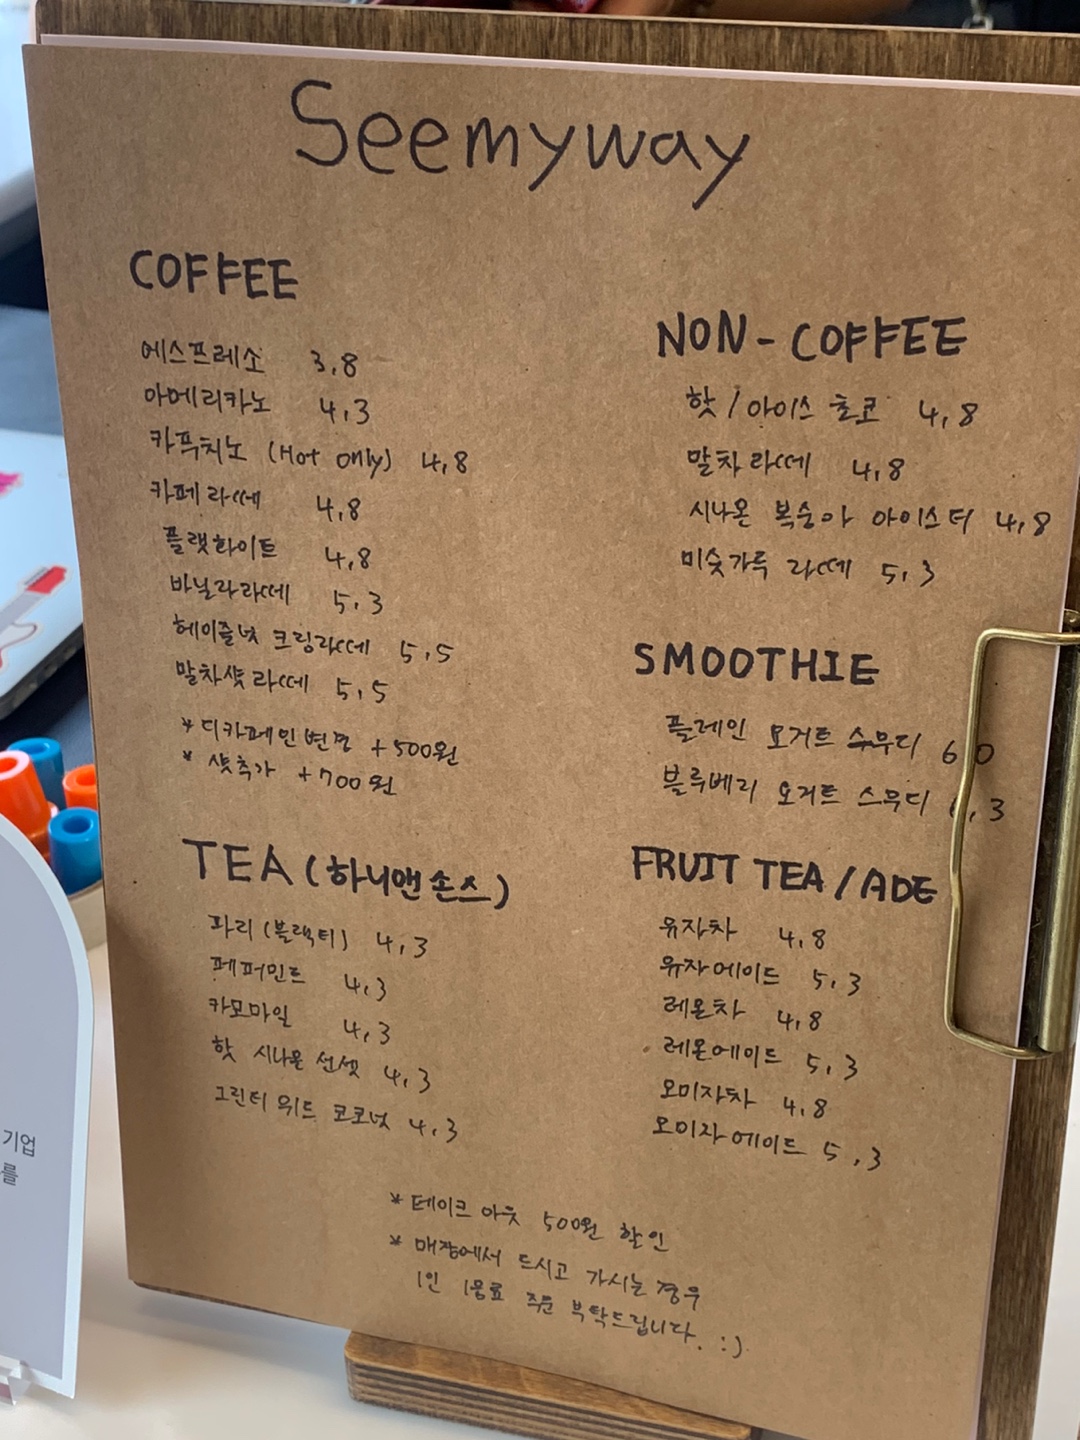 Seemyway
COFFEE
에스프레소 3,8
아메리카노 4,3
카푸치노 (Hot only) 4,8
카페라떼 4,8
플랫화이트 4,8
바닐라라떼 5,3
헤이즐넛 크림라떼 5,5
말차샷라떼 5,5
*디카페인변경 +500원
* 샷추가 +700원
TEA (하니앤손스)
파리 (블랙티) 4,3
페퍼민트 4,3
카모마일 4,3
핫 시나몬 선셋 4,3
그린티 위드 코코넛 4,3
NON-COFFEE
핫/아이스 초코 4,8
말차라떼 4,8
시나몬 복숭아 아이스티 4,8
미숫가루 라떼 5,3
SMOOTHIE
플레인 요거트 스무디 6 0
블루베리 요거트 스무디 , 3
FRUIT TEA/ADE
유자차 4,8
유자에이드 5,3
레몬차 4,8
레몬에이드 5,3
오미자차 4,8
오미자에이드 5,3
* 테이크 아웃 500원 할인
* 매장에서 드시고 가시는 경우
1인 1음료 주문 부탁드립니다. :)
기업
를